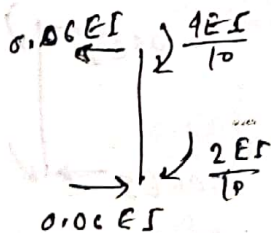 0.06EI
4EI
10
2EI
10
0.06EI